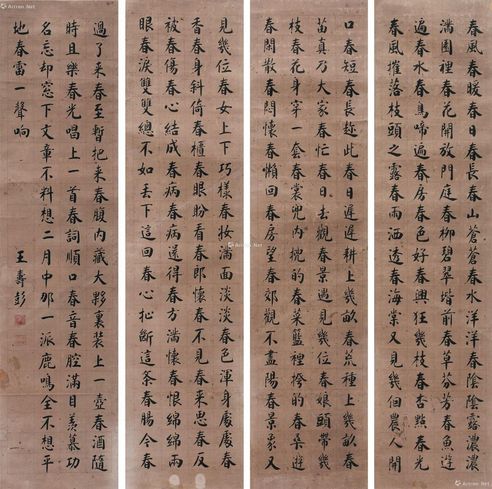 春風春暖春日春長春山蒼蒼春水洋洋春陰陰露濃濃
滿園裡春花開放門庭春柳碧翠堦前春草芬芳春魚遊
遍春水春鳥啼遍春房春色好春興狂幾枝春杏點春光
春風摧落枝頭之露春雨洒透春海棠又見幾個農人開
口春短春長趂此春日遲遲耕上幾畝春荒種上幾畝春
苗真乃大家春忙春日去觀春景遇見幾位春娘頭帶幾
枝春花身穿一套春裳兜內挽的春菜籃裡挎的春桑遊
春閑散春悶懷春懶回春房望春郊觀不盡陽春景象又
見幾位春女上下巧樣春妝滿面淡淡春色渾身處處春
香春身斜倚春櫃春眼盼看春郎懷春不見春来思春反
被春傷春心結成春病春病還得春方滿懷春恨綿綿兩
眼春淚雙雙總不如丢下這回春心扯斷這条春腸今春
過了来春至暫把来春腹內藏大夥裏装上一壺春酒随
時且樂春光唱上一首春詞順口春音春腔滿目羡慕功
名忘却窓下文章不料想二月中那一派鹿鳴全不想平
地春雷一聲响
王壽彭